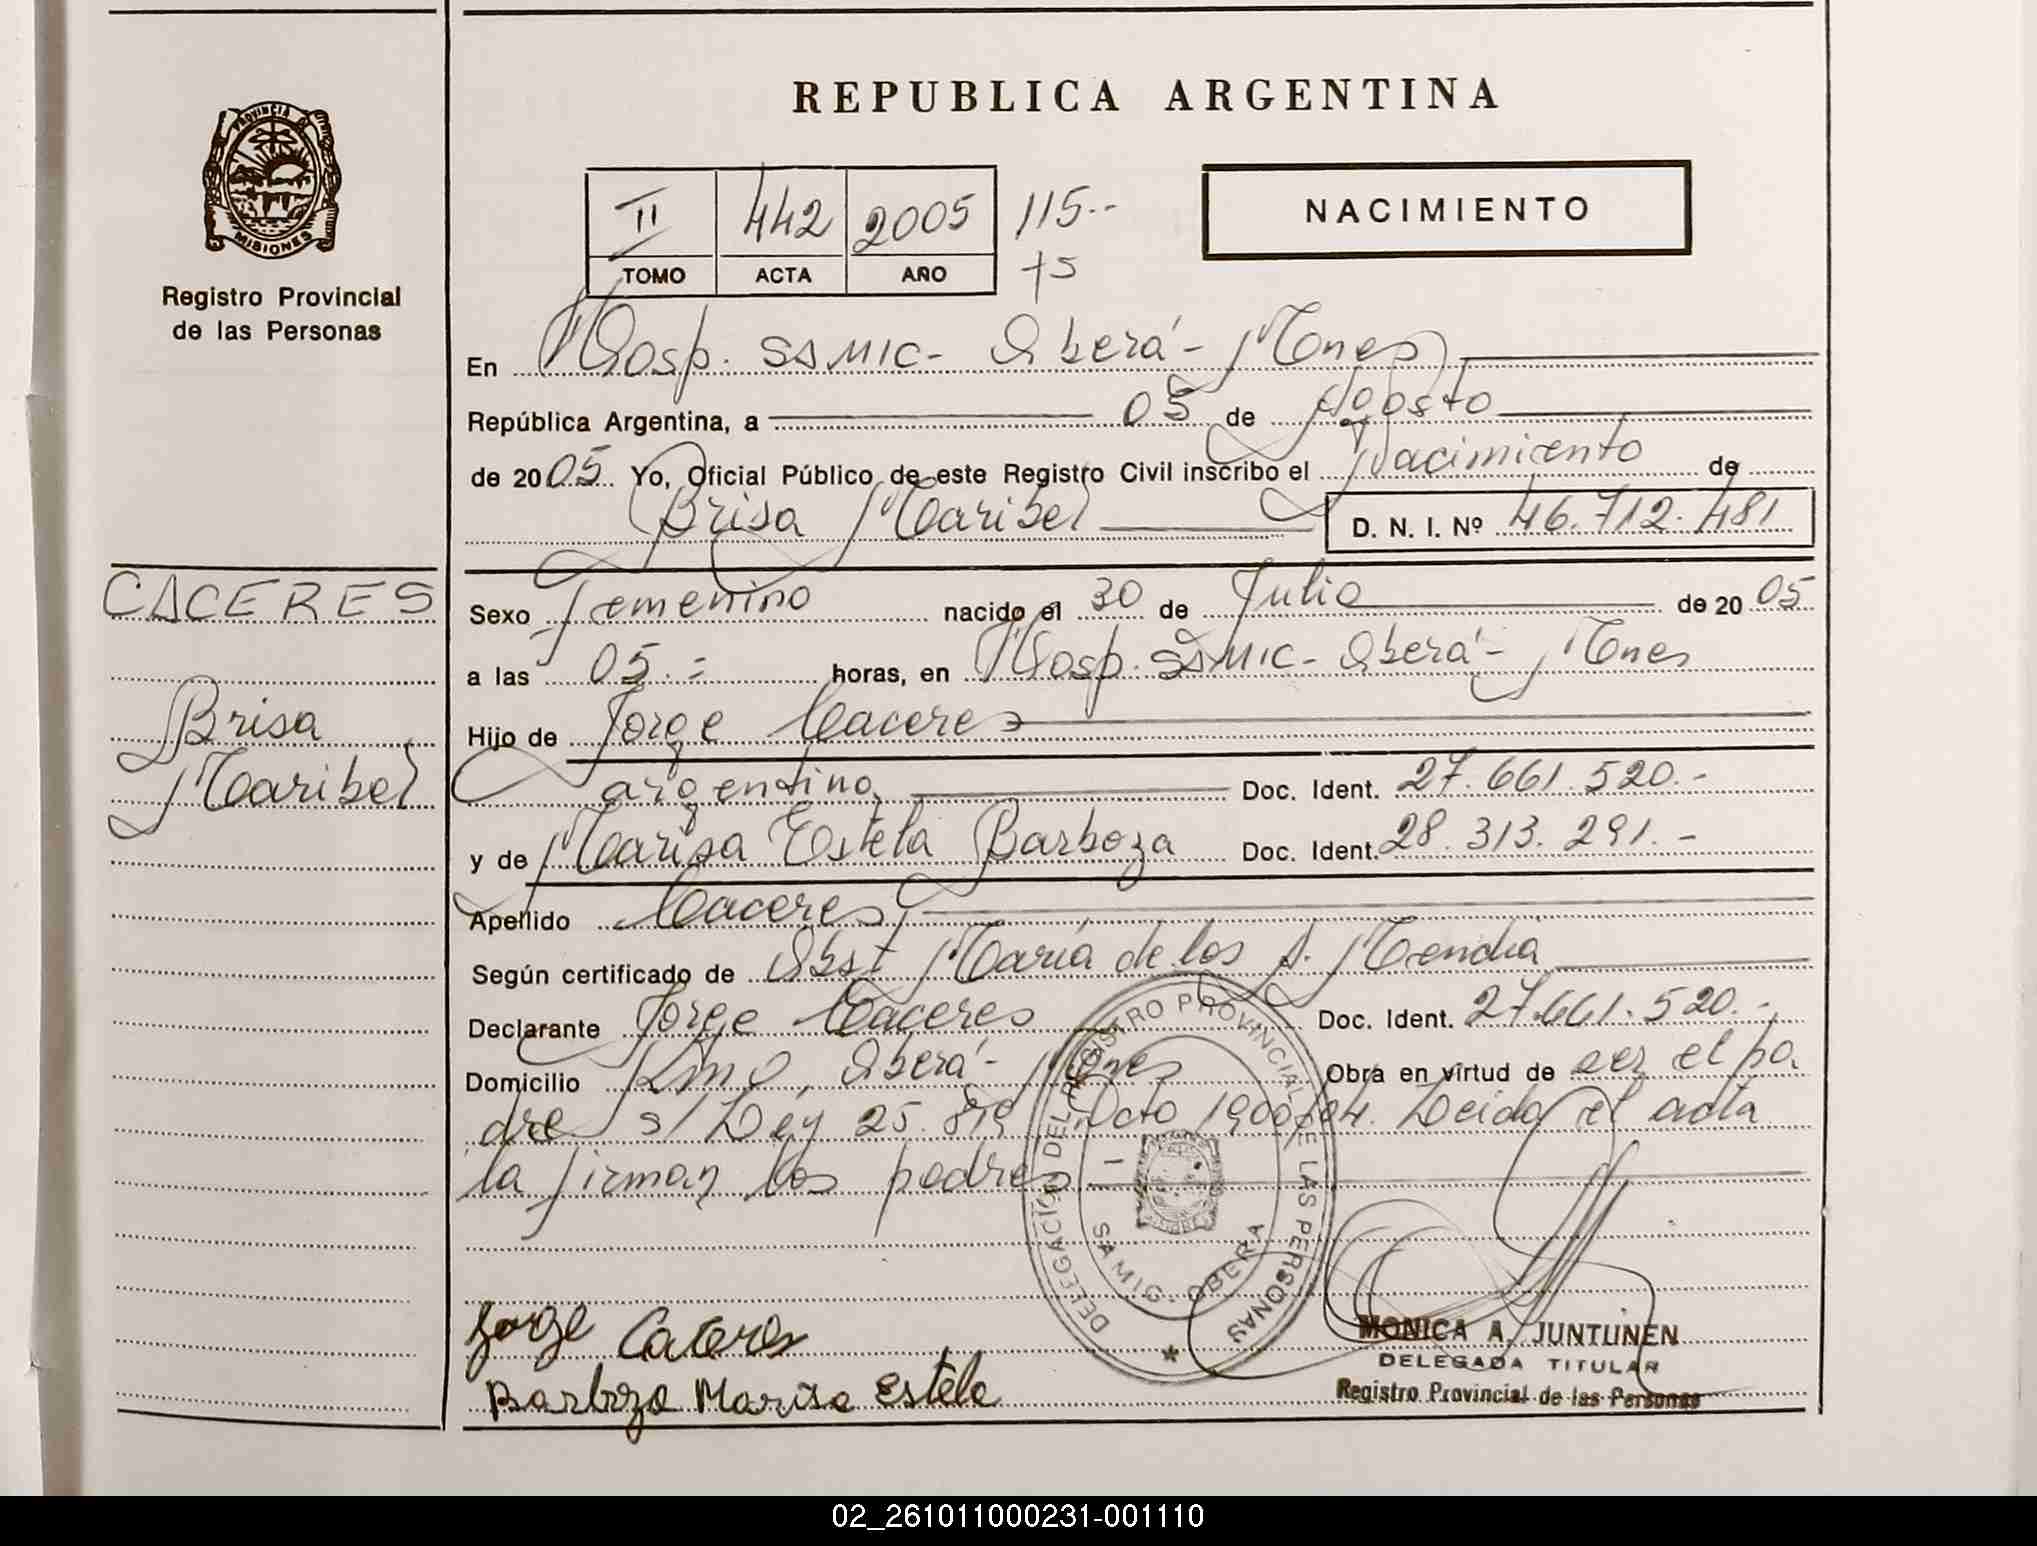 REPUBLICA ARGENTINA
PROVINCIA DE
MISIONES
Registro Provincial
de las Personas
II 442 2005 115.--
TOMO ACTA AÑO +5
NACIMIENTO
En Hosp. SAMIC- Oberá- Mnes
República Argentina, a 05 de Agosto
de 2005. Yo, Oficial Público de este Registro Civil inscribo el Nacimiento de
Brisa Maribel D. N. I. Nº 46.712.481
CACERES
Brisa
Maribel
Sexo Femenino nacido el 30 de Julio de 2005
a las 05.= horas, en Hosp. SAMIC- Oberá- Mnes
Hijo de Jorge Caceres
argentino Doc. Ident. 27.661.520.-
y de Marisa Estela Barboza Doc. Ident. 28.313.291.-
Apellido Caceres
Según certificado de Obst María de los A. Mendia
Declarante Jorge Caceres Doc. Ident. 27.661.520.-
Domicilio Oberá- Mnes Obra en virtud de ser el pa
dre s/ Ley 25.819 Dcto 1900/04. Leida el acta
la firman los padres
DELEGACIÓN DEL REGISTRO PROVINCIAL DE LAS PERSONAS
SAMIC - OBERA
Jorge Caceres
Barboza Marisa Estela
MONICA A. JUNTUNEN
DELEGADA TITULAR
Registro Provincial de las Personas
02_261011000231-001110